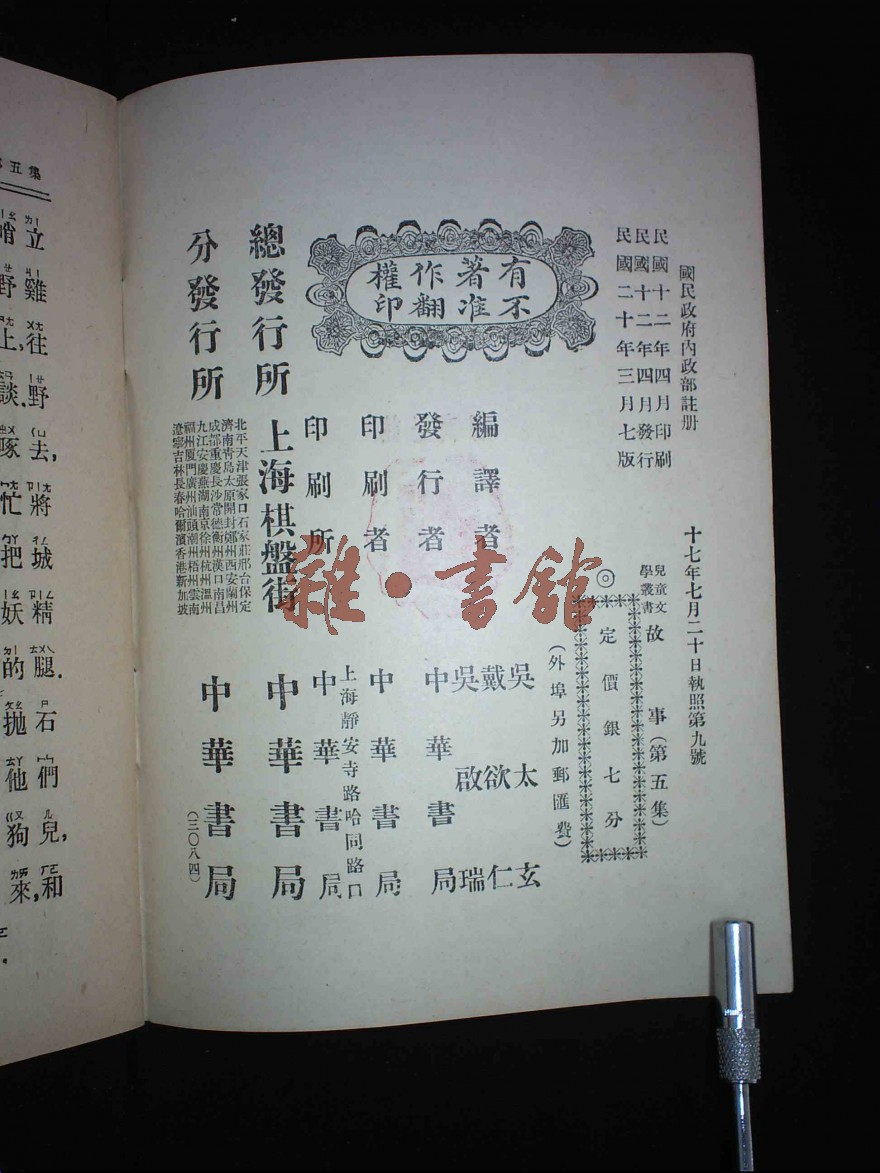 國民政府內政部註册
十七年七月二十日執照第九號
民國十二年四月印刷
民國十二年四月發行
民國二十年三月七版
兒童文學叢書
故事(第五集)
◎定價銀七分
(外埠另加郵匯費)
有著作權
不准翻印
編譯者
吳太玄
戴欲仁
吳啟瑞
發行者
中華書局
印刷者
中華書局
印刷所
上海靜安寺路哈同路口
中華書局
總發行所
上海棋盤街
中華書局
分發行所
北平天津張家口石家莊邢台保定
濟南青島太原開封鄭州西安蘭州
成都重慶長沙常德衡州漢口南昌
九江安慶蕪湖南京徐州杭州溫州
福州厦門廣州汕頭潮州梧州雲南
遼寧吉林長春哈爾濱香港新加坡
中華書局
(三〇八四)
雜·書舘
五集
立
雞
往
野
去,
將
城
精
腿.
石
們
兒,
和
野
上,
談.
啄
忙
把
妖
的
抛
他
狗
來,